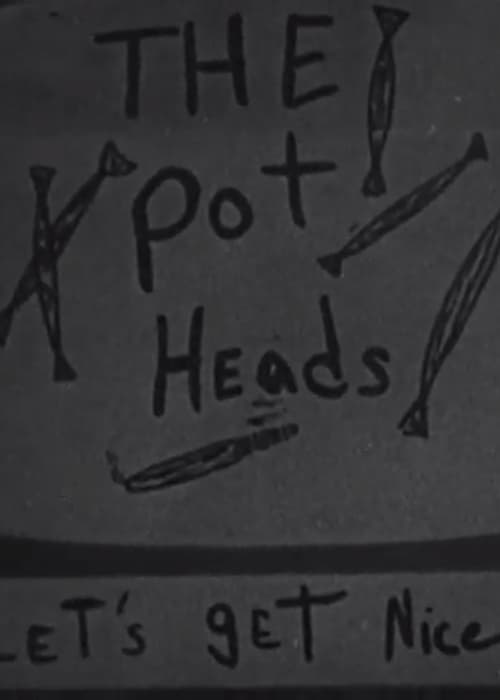 THE
Pot
HEads
LET's gET Nice